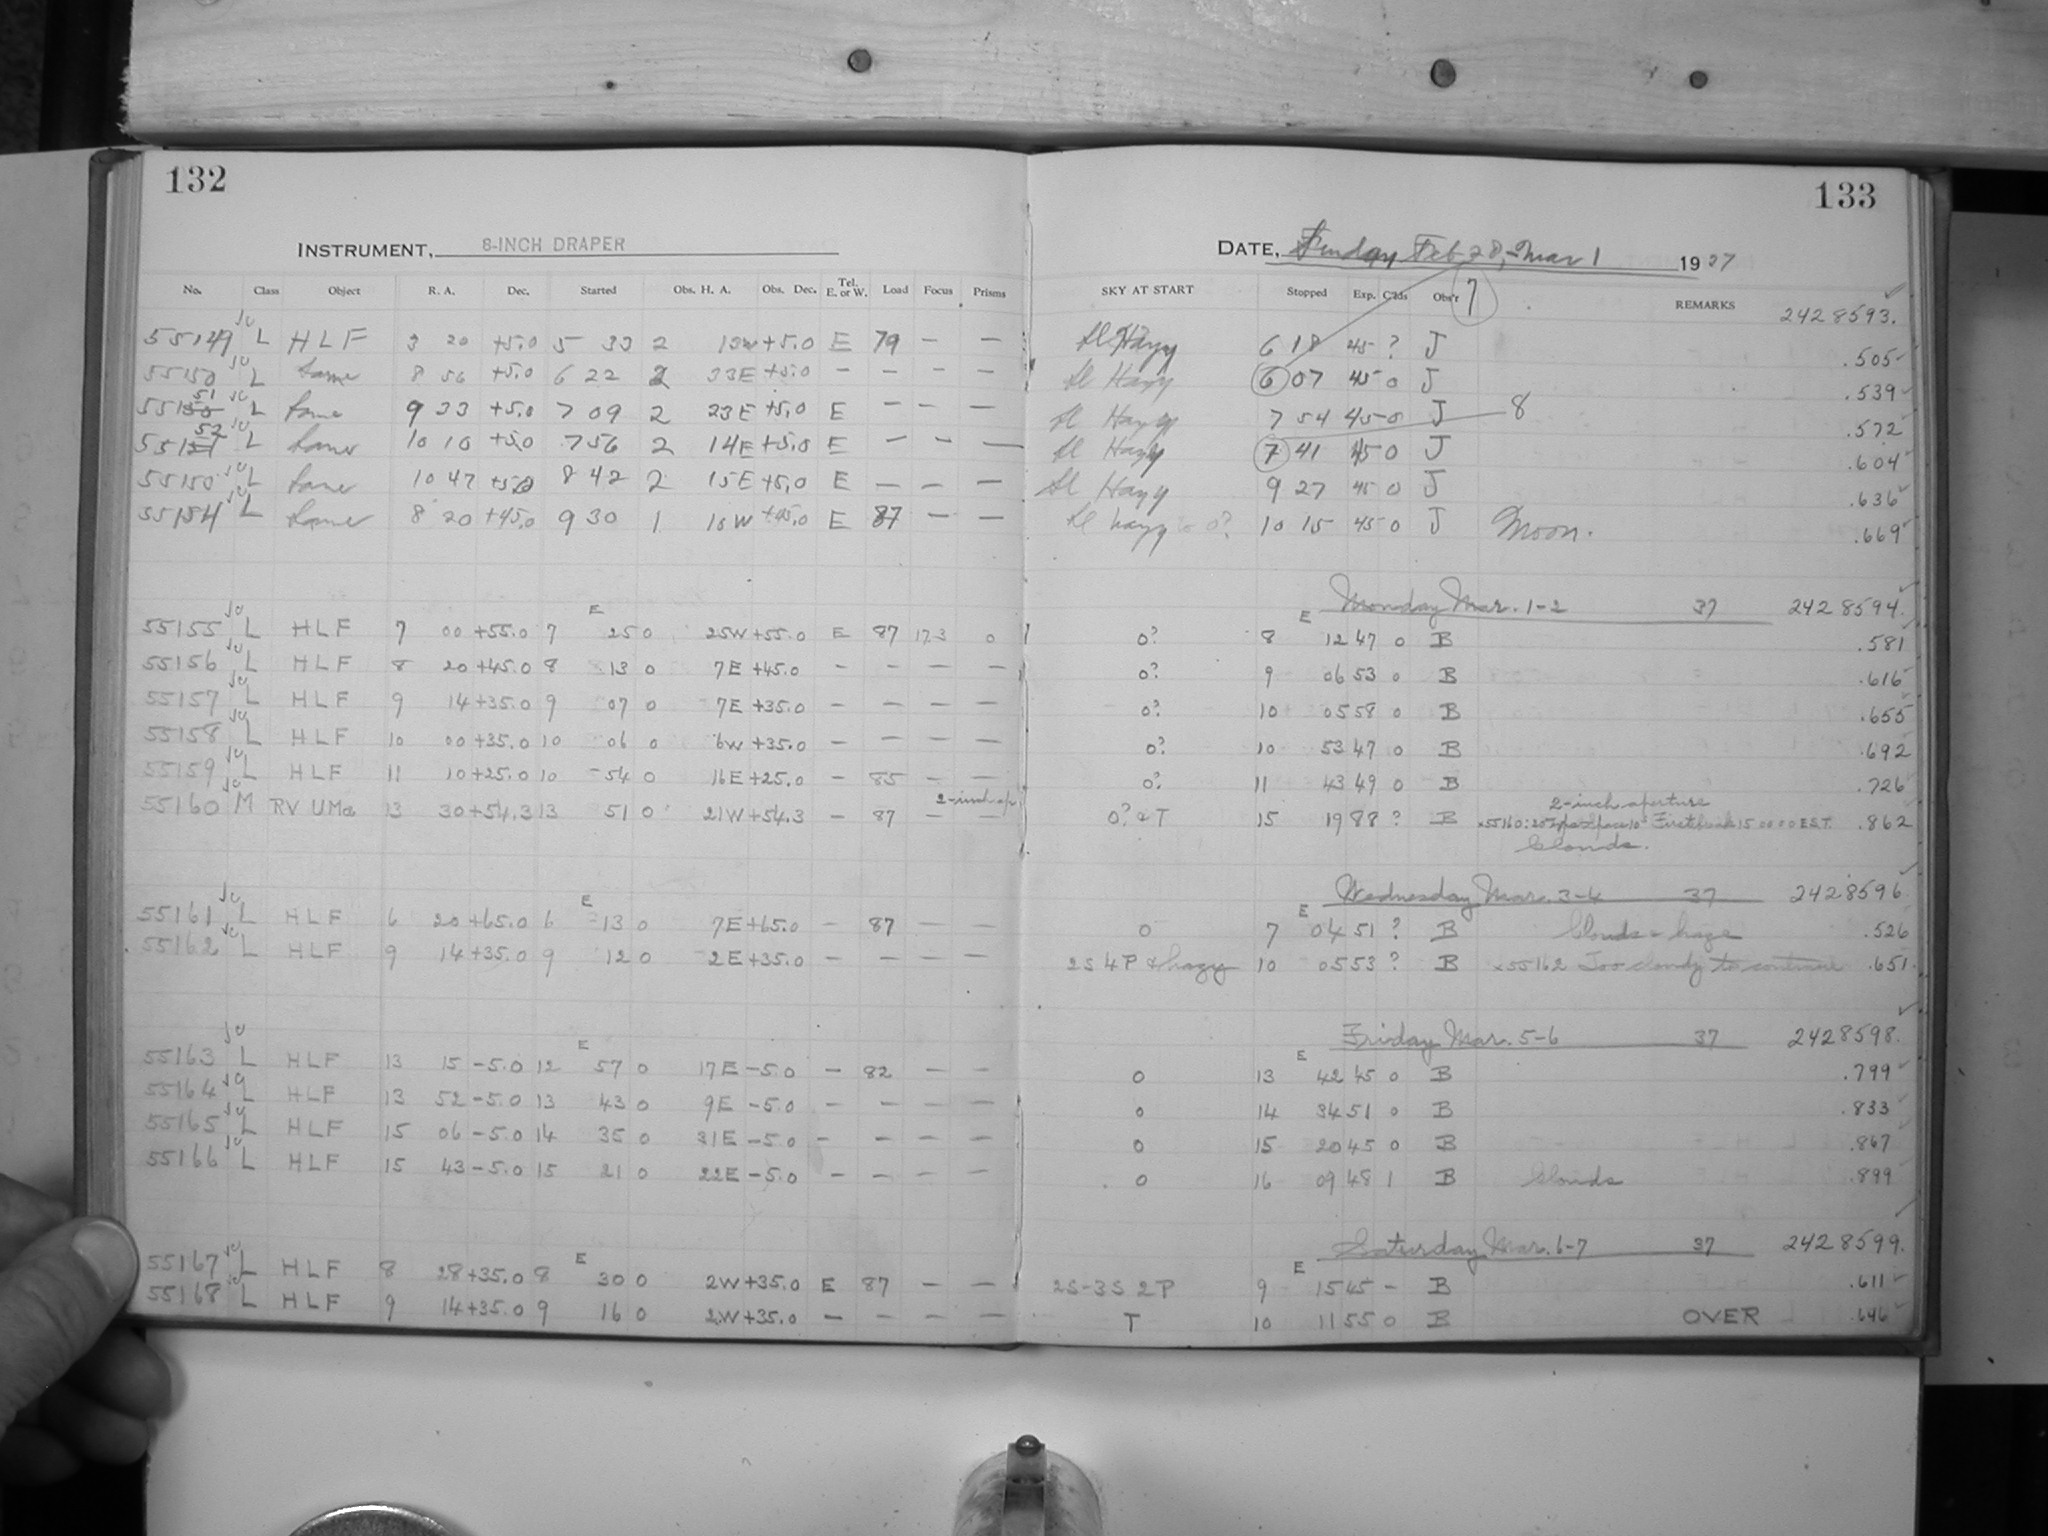 132
133
INSTRUMENT, 8-INCH DRAPER
DATE, Sunday Feb 28,-Mar 1 1937
No. Class Object R. A. Dec. Started Obs. H. A. Obs. Dec. Tel. E. or W. Load Focus Prisms
SKY AT START Stopped Exp. C'lds Obs'r 7 REMARKS 2428593.
55149 L HLF 3 20 +5.0 5 33 2 13W +5.0 E 79 – – Sl. Hazy 6 18 45 ? J .505
55150 L Same 8 56 +5.0 6 22 2 33E +5.0 – – – – Sl Hazy 6 07 45 0 J .539
55150 51 L Same 9 33 +5.0 7 09 2 23E +5.0 E – – – Sl Hazy 7 54 45 0 J 8 .572
55151 52 L Same 10 10 +5.0 7 56 2 14E +5.0 E – – – Sl Hazy 7 41 45 0 J .604
55153 L Same 10 47 +5.0 8 42 2 15E +5.0 E – – – Sl Hazy 9 27 45 0 J .636
55154 L Same 8 20 +45.0 9 30 1 10W +45.0 E 87 – – Sl hazy to 0? 10 15 45 0 J Moon. .669
Monday Mar. 1-2 37 2428594.
55155 L HLF 7 00 +55.0 7 E 25 0 25W +55.0 E 87 17.3 0 0? 8 E 12 47 0 B .581
55156 L HLF 8 20 +45.0 8 13 0 7E +45.0 – – – – 0? 9 06 53 0 B .616
55157 L HLF 9 14 +35.0 9 07 0 7E +35.0 – – – – 0? 10 05 58 0 B .655
55158 L HLF 10 00 +35.0 10 06 0 6W +35.0 – – – – 0? 10 53 47 0 B .692
55159 L HLF 11 10 +25.0 10 54 0 16E +25.0 – 85 – – 0? 11 43 49 0 B .726
2-inch ap. 2-inch aperture
55160 M RV UMa 13 30 +54.3 13 51 0 21W +54.3 – 87 – – 0? & T 15 19 88 ? B x55160: First 15 00 00 E.S.T. .862
Clouds.
Wednesday Mar. 3-4 37 2428596
55161 L HLF 6 20 +65.0 6 E 13 0 7E +65.0 – 87 – – 0 7 E 04 51 ? B Clouds & haze .526
55162 L HLF 9 14 +35.0 9 12 0 2E +35.0 – – – – 2S 4P & hazy 10 05 53 ? B x55162 Too cloudy to continue .651
Friday Mar. 5-6 37 2428598.
55163 L HLF 13 15 -5.0 12 E 57 0 17E -5.0 – 82 – – 0 13 E 42 45 0 B .799
55164 L HLF 13 52 -5.0 13 43 0 9E -5.0 – – – – 0 14 34 51 0 B .833
55165 L HLF 15 06 -5.0 14 35 0 31E -5.0 – – – – 0 15 20 45 0 B .867
55166 L HLF 15 43 -5.0 15 21 0 22E -5.0 – – – – 0 16 09 48 1 B Clouds .899
Saturday Mar. 6-7 37 2428599.
55167 L HLF 8 28 +35.0 8 E 30 0 2W +35.0 E 87 – – 2S-3S 2P 9 E 15 45 – B .611
55168 L HLF 9 14 +35.0 9 16 0 2W +35.0 – – – – T 10 11 55 0 B OVER .646